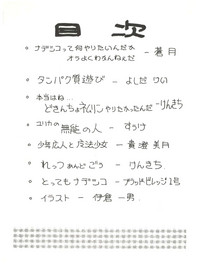 目次
・ナデシコって何やりたいんだか
オラよくわかんねえだ - 蒼月
・タンパク質遊び - よしだ けい
・本当はね…
どきんちゃんネムリンやりたかったんだ - けんきち
・ユリカの無能の人 - すうけ
・少年広人と魔法少女 - 貴澄 美月
・れっつあんどごう - けんきち
・とってもナデシコ - ブラッドビレッジ1号
・イラスト - 伊倉一男